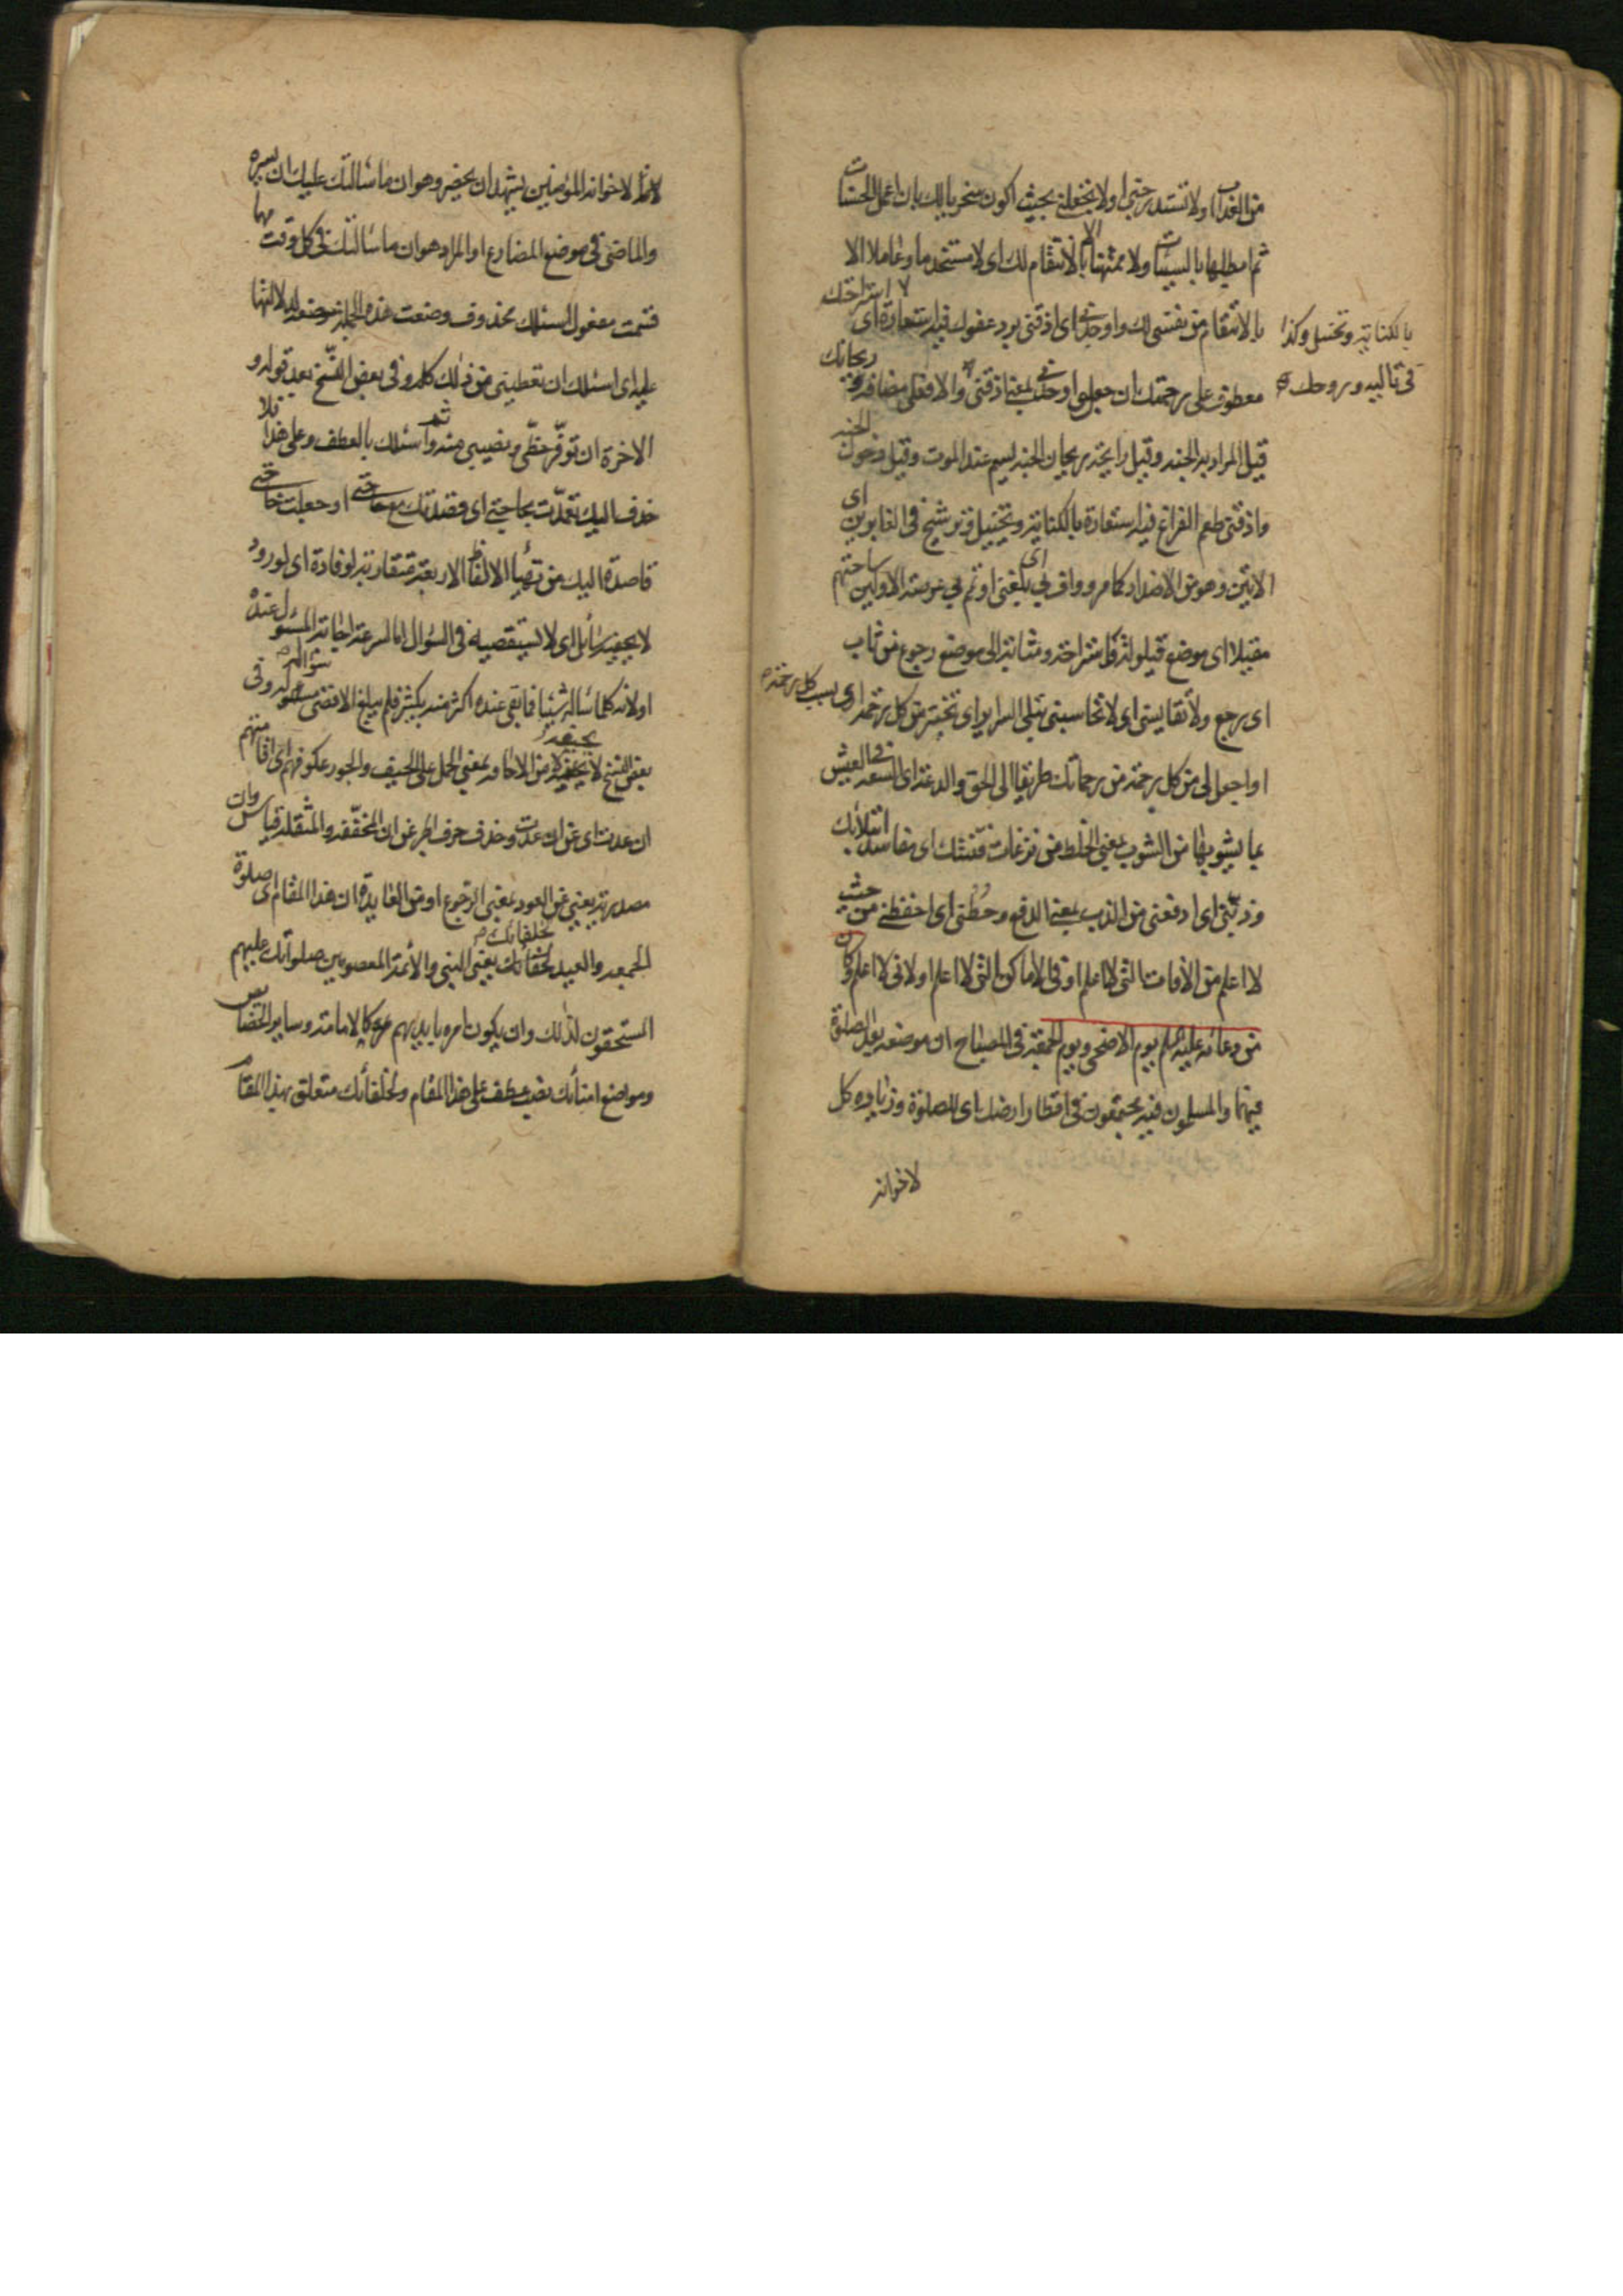 من العذاب ولا تستدرجني او لا تجعلني بحيث اكون سخريا لك بان اعمل الحسنات
ثم ابطلها بالسيئات ولا ممتهنا بالانتقام لك اى لا مستخدما وعاملا الا
بالانتقام من نفسي لك واوجدني اى اذقني برد عفوك فيه استعارة
بالكناية وتخييل وكذا
في تاليه وروحك
معطوف على رحمتك ان جعل اوجدني بمعنى اذقني والا فعلى مضافه
قيل المراد به الجنة وقيل رايحة ريحان الجنة يسم عند الموت وقيل دخول الجنة
واذقني طعم الفراغ فيه استعارة بالكناية وتخييل في الغابرين اى
الاتين وهو من الاضداد كما مر وواف بي اى بلغني او تم بي عرصة الاولين ساحتهم
مقيلا اى موضع قيلولة واستراحة ومثابة الى موضع رجوع من ثاب
اى رجع ولا تقايسني اى لا تحاسبني تبلى السراير اى تختبر من كل رحمة اى بسبب كل رحمة
او اجعل لي من كل رحمة من رحماتك طريقا الى الحق والدعة اى السعة في العيش
بما يشوبها من الشوب بمعنى الخلط من نزغات فتنتك اى مفاسد ابتلائك
وذبني اى ادفعني من الذب بمعنى الدفع وحطني اى احفظني من حيث
لا اعلم من الآفات التي لا اعلم او في الاماكن التي لا اعلم او لاني لا اعلم وكان
من دعائه عليه السلم يوم الاضحى ويوم الجمعة في المصباح ان موضعه بعد الصلوة
فيهما والمسلمون فيه يجتمعون في اقطار ارضك اى للصلوة وزيادة كل
لاخوانه
لاخوانه المؤمنين يشهد ان يحضر وهو ان ما سالتك عليك ان يسيره
والماضي في موضع المضارع او المراد هو ان ما سالتك في كل وقت مهما
قسمت مفعول اسئلك محذوف وضعت هذه الجملة موضعه لدلالتها
عليه اى اسئلك ان تعطيني من ذلك كله وفي بعض النسخ بعد قوله و
الاخرة ان توفر حظي ونصيبي منه واسئلك بالعطف وعلى هذا فلا
حذف اليك تعمدت بحاجتي اى قصدتك مع حاجتي او جعلت حاجتي
قاصدة اليك من تهيأ الالفاظ الاربعة متقاربة لوفادة اى لورود
لا يحفيه سائل اى لا يستقصيه في السؤال اما لسرعة اجابة المسئول عنده
او لانه كلما سأله شيئا فابقى عنده اكثر منه بكثير فلم يبلغ الاقصى سؤاله وفي
بعض النسخ لا يحيفه من الاحافة بمعنى الحمل على الحيف والجور عكوفهم اى اقامتهم
ان عدت اى عن ان عدت وحذف حرف الجر عن ان المخففة والمثقلة قياس وان
مصدرية يعني عن العود بمعنى الرجوع او من العايدة ان هذا المقام اى صلوة
الجمعة والعيد لخلفائك يعني النبي والأئمة المعصومين صلواتك عليهم
المستحقون لذلك وان يكون امره بايديهم كالامامة وساير الخصايص
ومواضع امنائك بغير عطف على هذا المقام ولخلفائك متعلق بهذا المقام